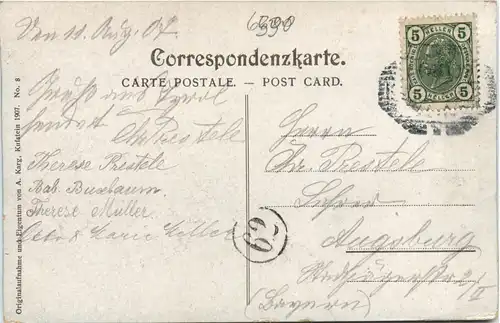 Den 11. Aug. 07
6590
Correspondenzkarte.
CARTE POSTALE. — POST CARD.
Gruß aus Tyrol
sendet
Therese Prestele
Bab. Buxbaum.
Therese Müller
Marie
Originalaufnahme und Eigentum von A. Karg, Kufstein 1907. No. 8
5 HELLER 5
5 5
62
Herrn
Chr. Prestele
Lehrer
Augsburg
2/II
(Bayern)